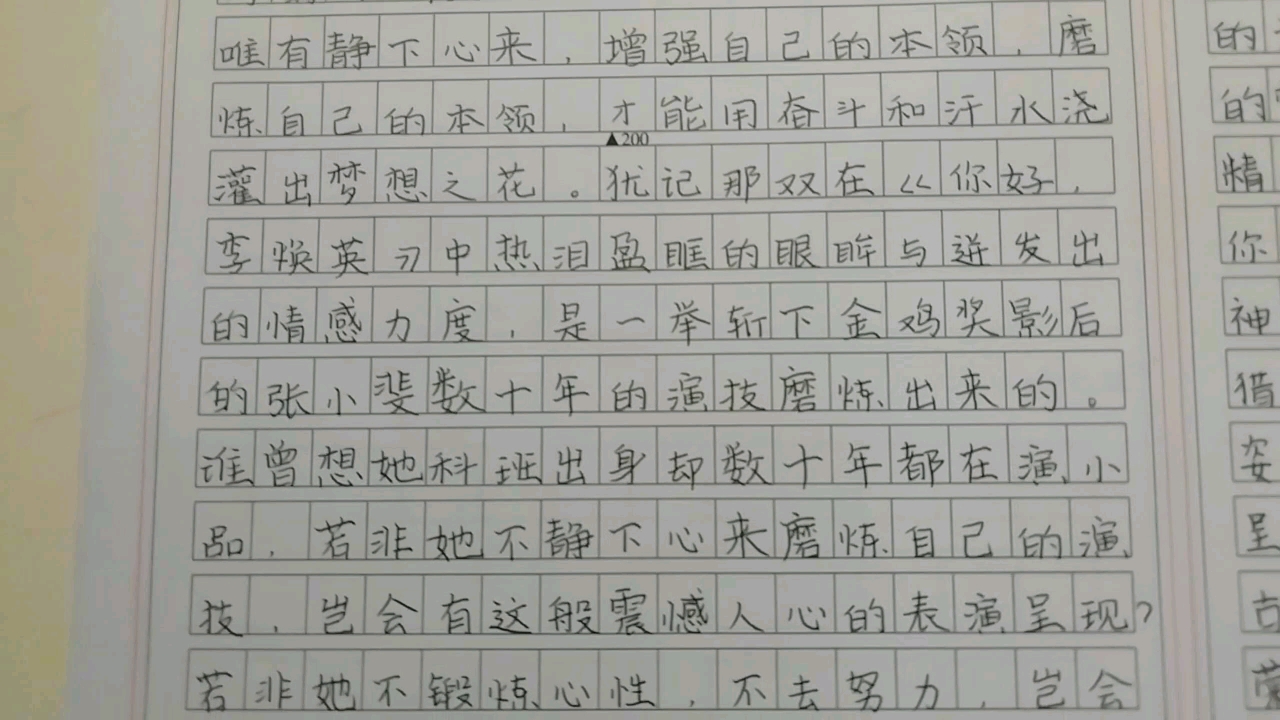 唯有静下心来，增强自己的本领，磨
炼自己的本领，才能用奋斗和汗水浇
▲200
灌出梦想之花。犹记那双在《你好，
李焕英》中热泪盈眶的眼眸与迸发出
的情感力度，是一举斩下金鸡奖影后
的张小斐数十年的演技磨炼出来的。
谁曾想她科班出身却数十年都在演小
品，若非她不静下心来磨炼自己的演
技，岂会有这般震憾人心的表演呈现？
若非她不锻炼心性，不去努力，岂会
的
的
精
你
神
猎
姿
呈